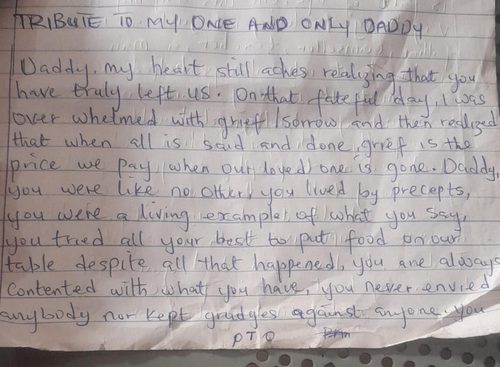 TRIBUTE TO MY ONE AND ONLY DADDY
Daddy, my heart still aches realizing that you
have truly left us. On that fateful day, I was
over whelmed with grief/sorrow and then realized
that when all is said and done, grief is the
price we pay when our loved one is gone. Daddy,
you were like no other, you lived by precepts,
you were a living example of what you say,
you tried all your best to put food on our
table despite all that happened, you are always
contented with what you have, you never envied
anybody nor kept grudges against anyone. You
PTO